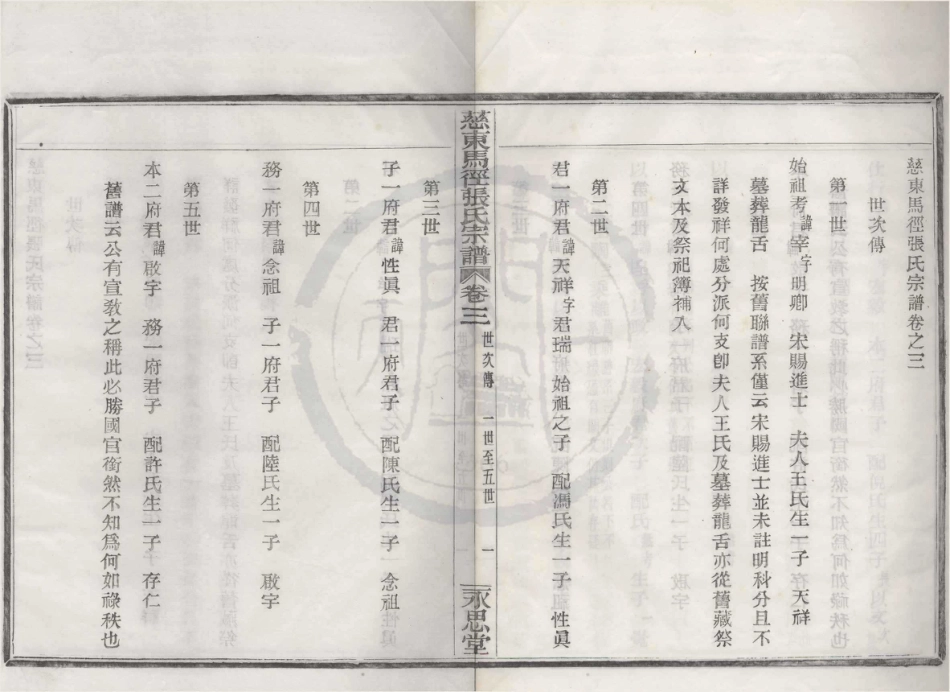 慈東馬徑張氏宗譜卷之三
世次傳
第一世
始祖考諱宰字明卿　宋賜進士　夫人王氏生一子天祥
墓葬龍舌　按舊聯譜系僅云宋賜進士並未註明科分且不
詳發祥何處分派何支卽夫人王氏及墓葬龍舌亦從舊藏祭
文本及祭祀簿補入
第二世
君一府君諱天祥字君瑞　始祖之子　配馮氏生一子　性眞
慈東馬徑張氏宗譜　卷三　世次傳　一世至五世　一　永思堂
第三世
子一府君諱性眞　君一府君子　配陳氏生一子　念祖
第四世
務一府君諱念祖　子一府君子　配陸氏生一子　啟宇
第五世
本二府君諱啟宇　務一府君子　配許氏生一子　存仁
舊譜云公有宣敎之稱此必勝國官銜然不知爲何如祿秩也